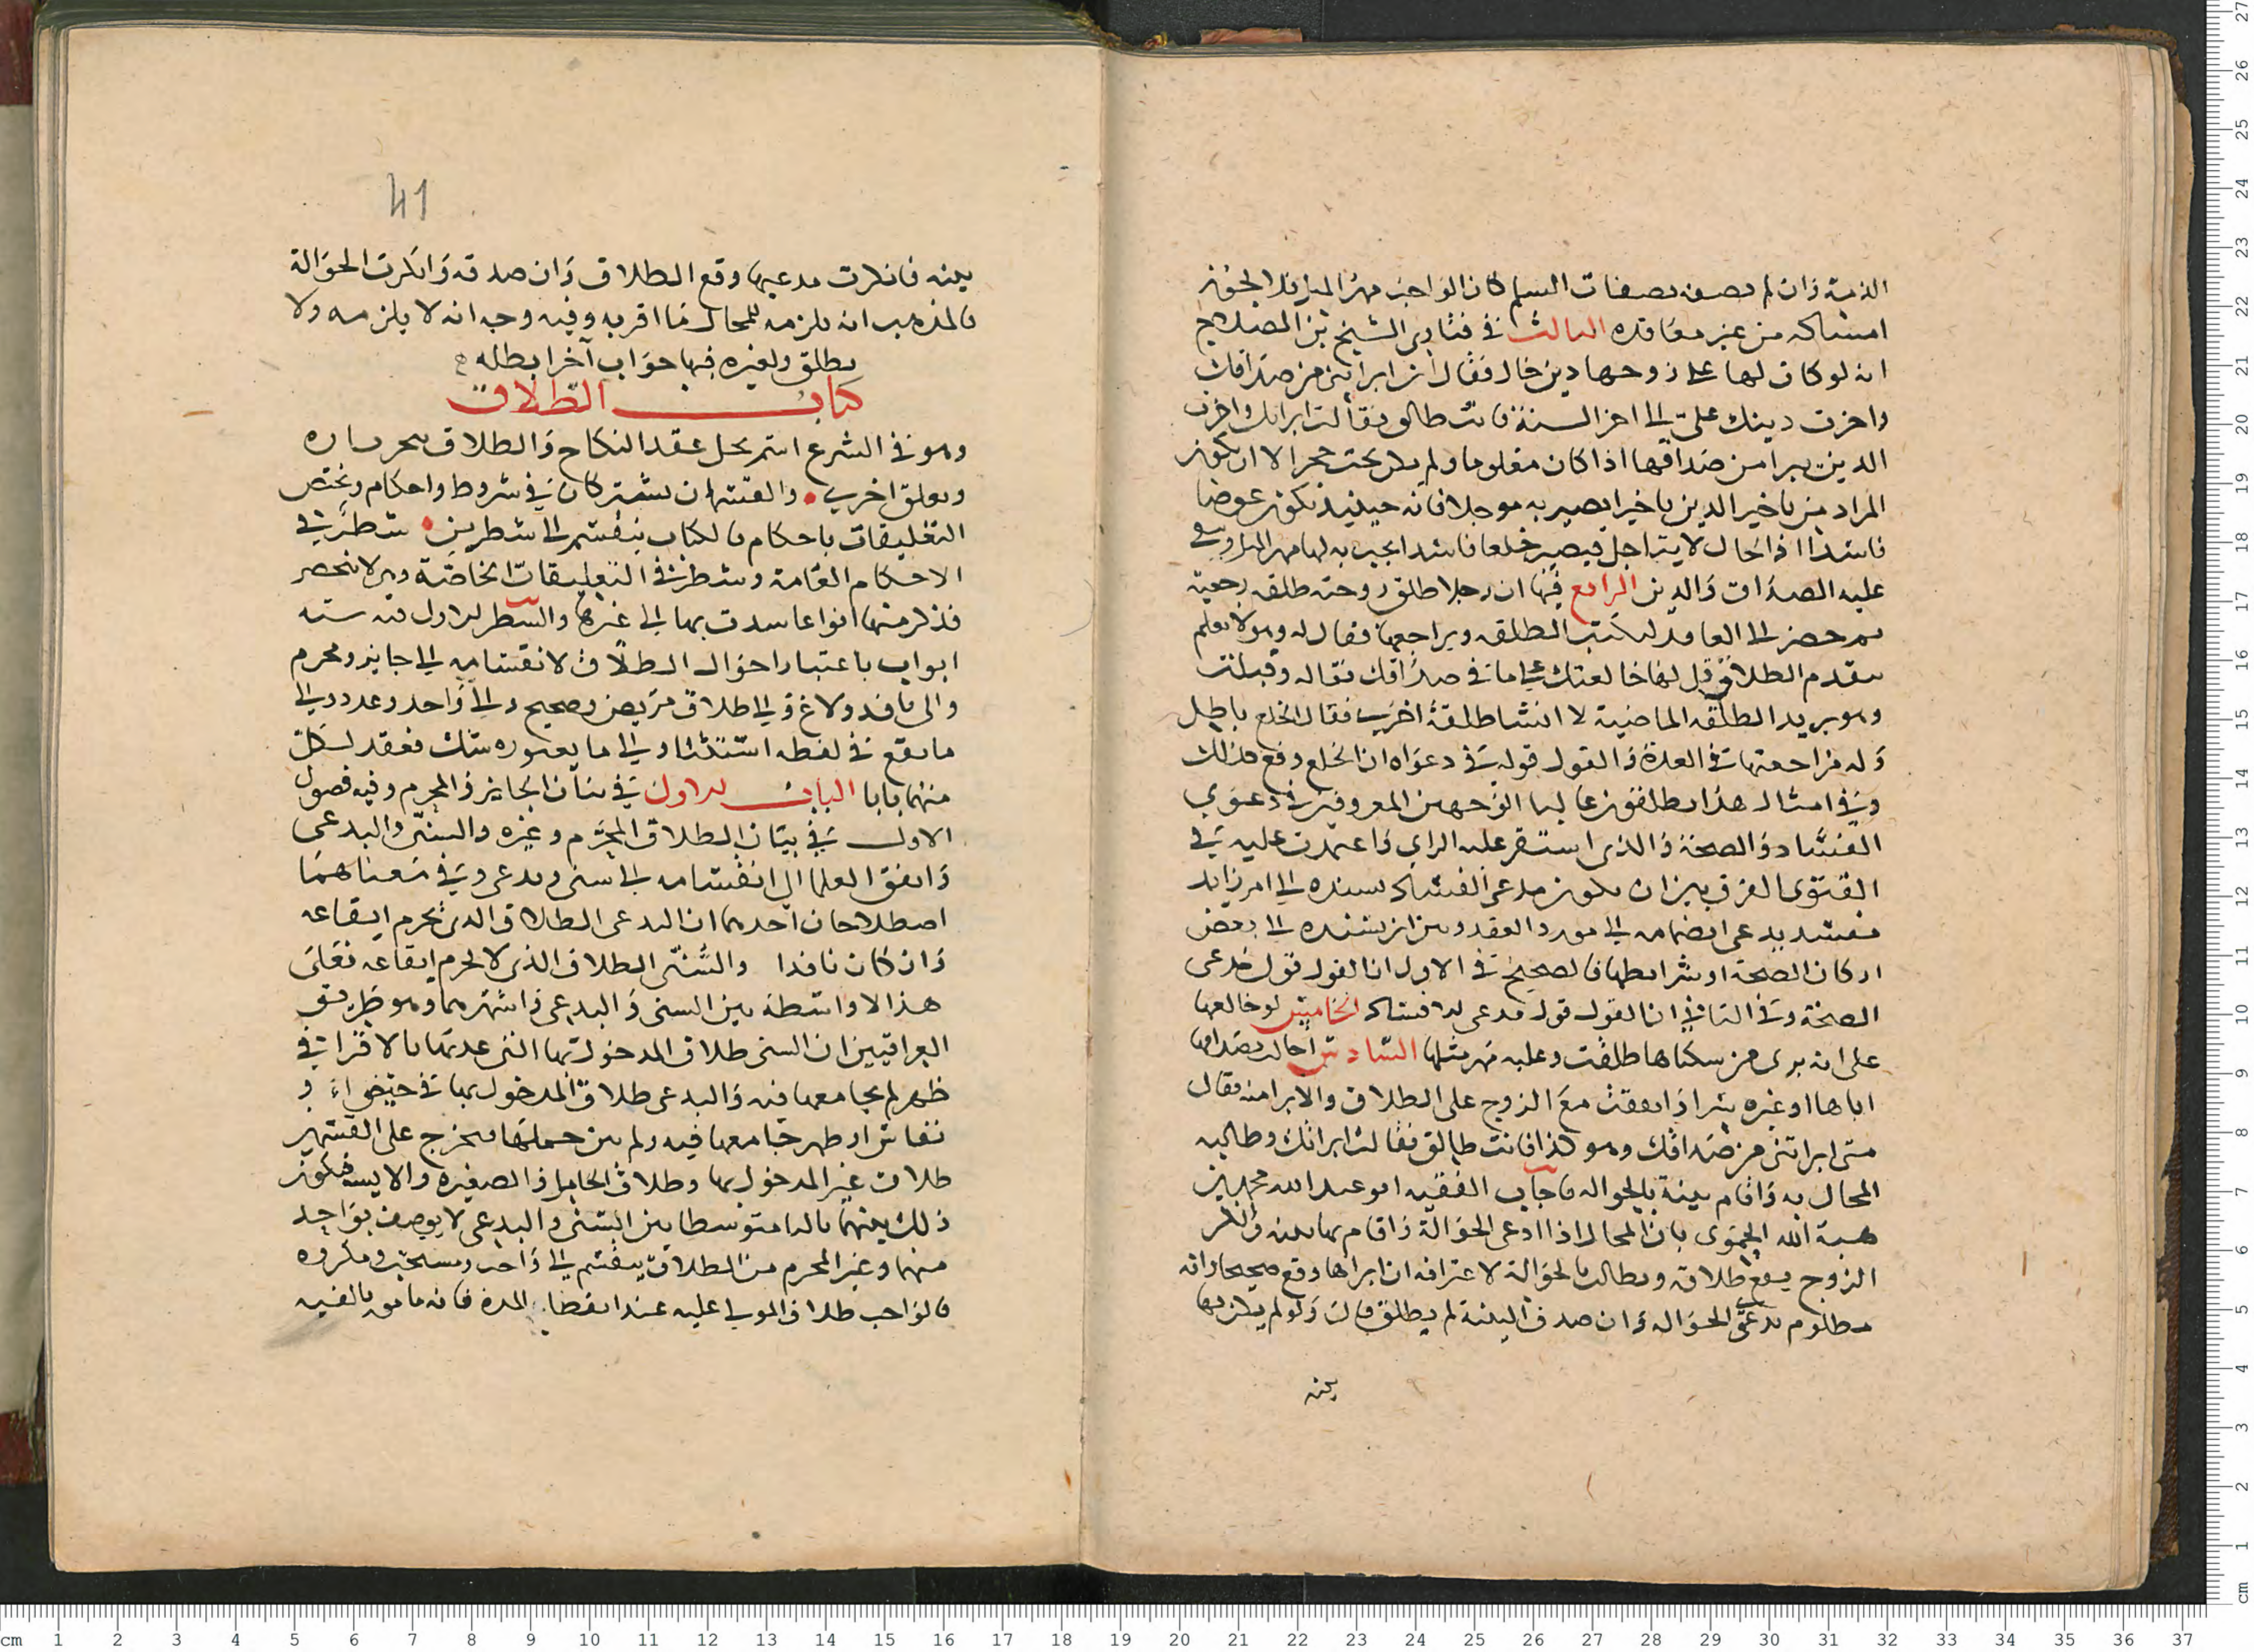 الذمة وان لم يصفه بصفات السلم كان الواجب مهر المثل فلا يجوز
امساكه من غير معاقده الثالث في فتاوى الشيخ بن الصلاح
انه لو كان لها على زوجها دين حال فقال ان ابراتني من صداقك
واخرت دينك علي الى اخر السنة فانت طالق فقالت ابراتك واخرت
الدين يبرا من صداقها اذا كان معلوما ولم يكن تحت حجر الا ان يكون
المراد من تاخير الدين تاخيرا يصير به موجلا فانه حينيذ يكون عوضا
فاسدا اذا الحال لا يتاجل فيصير خلعا فاسدا يجب به لها مهر المثل وبقي
عليه الصداق والدين الرابع فيها ان رجلا طلق زوجته طلقه رجعية
ثم حضر الى العاقد ليكتب الطلقه ويراجعها فقال له وهو لا يعلم
بتقدم الطلاق قل لها خالعتك على ما في صداقك فقاله وقبلت
وهو يريد الطلقه الماضية لا انشا طلقة اخرى فقال الخلع باطل
وله مراجعتها في العدة والقول قوله في دعواه ان الخلع وقع كذلك
وفي امثال هذا يطلقون غالبا الوجهين المعروفين في دعوى
الفساد والصحة والذى استقر عليه الراى واعتمدت عليه في
الفتوى الفرق بين ان يكون مدعى الفساد يسنده الى امر زايد
مفسد يدعى انضمامه الى مورد العقد وبين ان يسنده الى بعض
اركان الصحة او شرايطها فالصحيح في الاول ان القول قول مدعى
الصحة وفي الثاني ان القول قول مدعى الافساد الخامس لو خالعها
على انه برى من سكناها طلقت وعليه مهر مثلها السادس احالت بصداقها
اباها او غيره سرا واتفقت مع الزوج على الطلاق والابرا منه فقال
متى ابراتني من صداقك وهو كذا فانت طالق فقالت ابراتك وطالبه
المحال به واقام بينة بالحواله فاجاب الفقيه ابو عبد الله محمد بن
هبة الله الحموى بان المحال اذا ادعى الحوالة واقام بها بينه وانكر
الزوج يقع طلاقه ويطالب بالحوالة لاعترافه ان ابراها وقع صحيحا وانه
مظلوم بدعوى الحواله وان صدق البينة لم يطلق قال ولو لم يكن بها
بينه
41
بينه فانكرت مدعيها وقع الطلاق وان صدقه وانكرت الحوالة
فالمذهب انه يلزمه للمحال ما اقر به وفيه وجه انه لا يلزمه ولا
يطلق ولغيره فيها جواب آخر ابطله
كتاب الطلاق
وهو في الشرع اسم لحل عقد النكاح والطلاق ينجز تاره
ويعلق اخرى والقسمان يشتركان في شروط واحكام وتختص
التعليقات باحكام فالكتاب ينقسم الى شطرين شطر في
الاحكام العامة وشطر في التعليقات الخاصة وهي لا تنحصر
فذكر منها انواعا يستدل بها الى غيرها والشطر الاول فيه سته
ابواب باعتبار احوال الطلاق لانقسامه الى جايز ومحرم
والى نافد ولاغ والى طلاق مريض وصحيح والى واحد وعدد والى
ما يقع في لفظه استثنا والى ما يعتوره شك فعقد لكل
منها بابا الباب الاول في بيان الجايز والمحرم وفيه فصول
الاول في بيان الطلاق المحرم وغيره والسني والبدعى
واتفق العلما الى انقسامه الى سنى وبدعى وفي معناهما
اصطلاحان احدهما ان البدعى الطلاق الذى يحرم ايقاعه
وان كان نافدا والسني الطلاق الذى لا يحرم ايقاعه فعلى
هذا لا واسطة بين السنى والبدعى واشهرهما وهو طريق
العراقيين ان السنى طلاق المدخول بها التى عدتها بالاقرا في
طهر لم يجامعها فيه والبدعى طلاق المدخول بها في حيض او
نفاس او طهر جامعها فيه ولم يتبين حملها فخرج على القسمين
طلاق غير المدخول بها وطلاق الحامل والصغيره والايسه فيكون
ذلك بينهما ثالثا متوسطا بين السنى والبدعى لا يوصف بواحد
منهما وغير المحرم من الطلاق ينقسم الى واجب ومستحب ومكروه
فالواجب طلاق المولى عليه عند انقضا المدة فانه مامور بالفيه